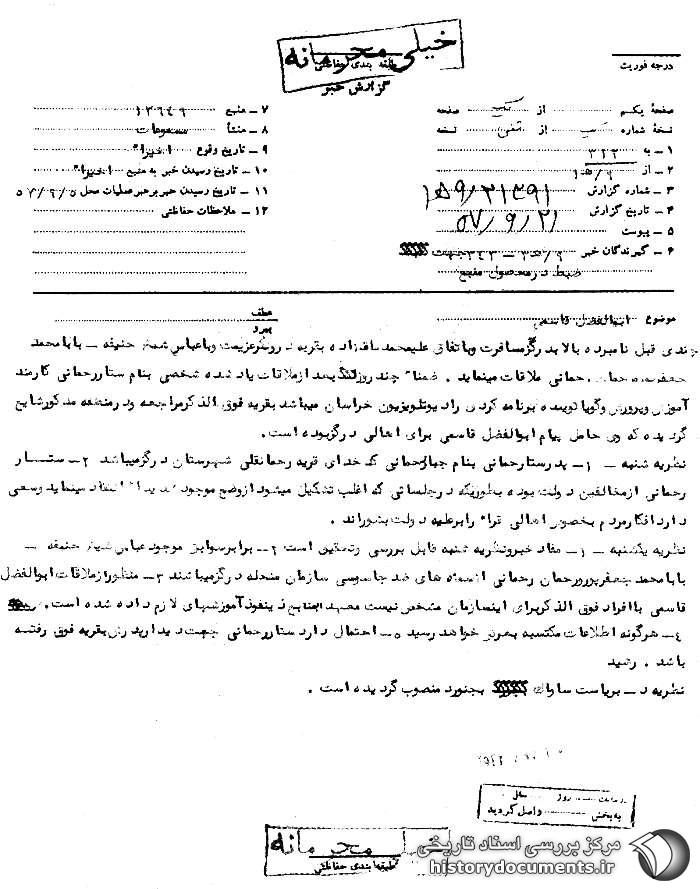 خیلی محرمانه
طبقه بندی حفاظتی
گزارش خبر
درجه فوریت
صفحهٔ یکم از یک صفحه
نسخهٔ شماره از نسخه
۱ – به ۳۱۲
۲ – از ۱۵/۹
۳ – شماره گزارش ۱۵۹/۲۱۴۹۱
۴ – تاریخ گزارش ۵۷/۹/۲۱
۵ – پیوست
۶ – گیرندگان خبر جهت
ضبط در محصول منبع
۷ – منبع ۱۳۶۴۹
۸ – منشأ مسموعات
۹ – تاریخ وقوع اخیرا"
۱۰ – تاریخ رسیدن خبر به منبع اخیرا"
۱۱ – تاریخ رسیدن خبر برهبر عملیات محل ۵۷/۹/۵
۱۲ – ملاحظات حفاظتی
موضوع ابوالفضل قاسمی
عطف
پیرو
چندی قبل نامبرده بالا بدرگز مسافرت وباتفاق علیمحمد بقریه د عزیمت وباعباس شیخ حنیفه – بابامحمد
جعفرپور رحمان رحمانی ملاقات مینماید . ضمنا" چند روز بعد ازملاقات یاد شده شخصی بنام ستاررحمانی کارمند
آموزش وپرورش وگویا نویسنده برنامه کردی رادیوتلویزیون خراسان میباشد بقریه فوق الذکر مراجعه ودرمنطقه مذکورشایع
گردیده که وی حامل پیام ابوالفضل قاسمی برای اهالی درگزبوده است.
نظریه شنبه – ۱– پدرستاررحمانی بنام رحمانی کدخدای قریه رحمانقلی شهرستان درگزمیباشد ۲– ستار
رحمانی ازمخالفین دولت بوده بطوریکه درجلساتی که اغلب تشکیل میشود ازوضع موجود شدیدا" انتقاد مینماید وسعی
دارد افکارمردم بخصوص اهالی قراء رابرعلیه دولت بشوراند .
نظریه یکشنبه – ۱– مفاد خبرونظریه شنبه قابل بررسی وتحقیق است ۲– برابرسوابق موجود عباس شیخ حنیفه –
بابامحمد جعفرپورورحمان رحمانی ازسوژه های ضد جاسوسی سازمان منحله درگزمیباشند ۳– منظورازملاقات ابوالفضل
قاسمی باافراد فوق الذکر برای اینسازمان مشخص نیست معهذا بمنابع ذینفوذ آموزشهای لازم داده شده است.
۴– هرگونه اطلاعات مکتسبه بعرض خواهد رسید ۵– احتمال دارد ستاررحمانی جهت دیدارپدرش بقریه فوق رفته
باشد . رشید
نظریه د– بریاست ساواک بجنورد منصوب گردیده است .
روز سال
به بخش واصل گردید
محرمانه
طبقه بندی حفاظتی
مرکز بررسی اسناد تاریخی
historydocuments.ir